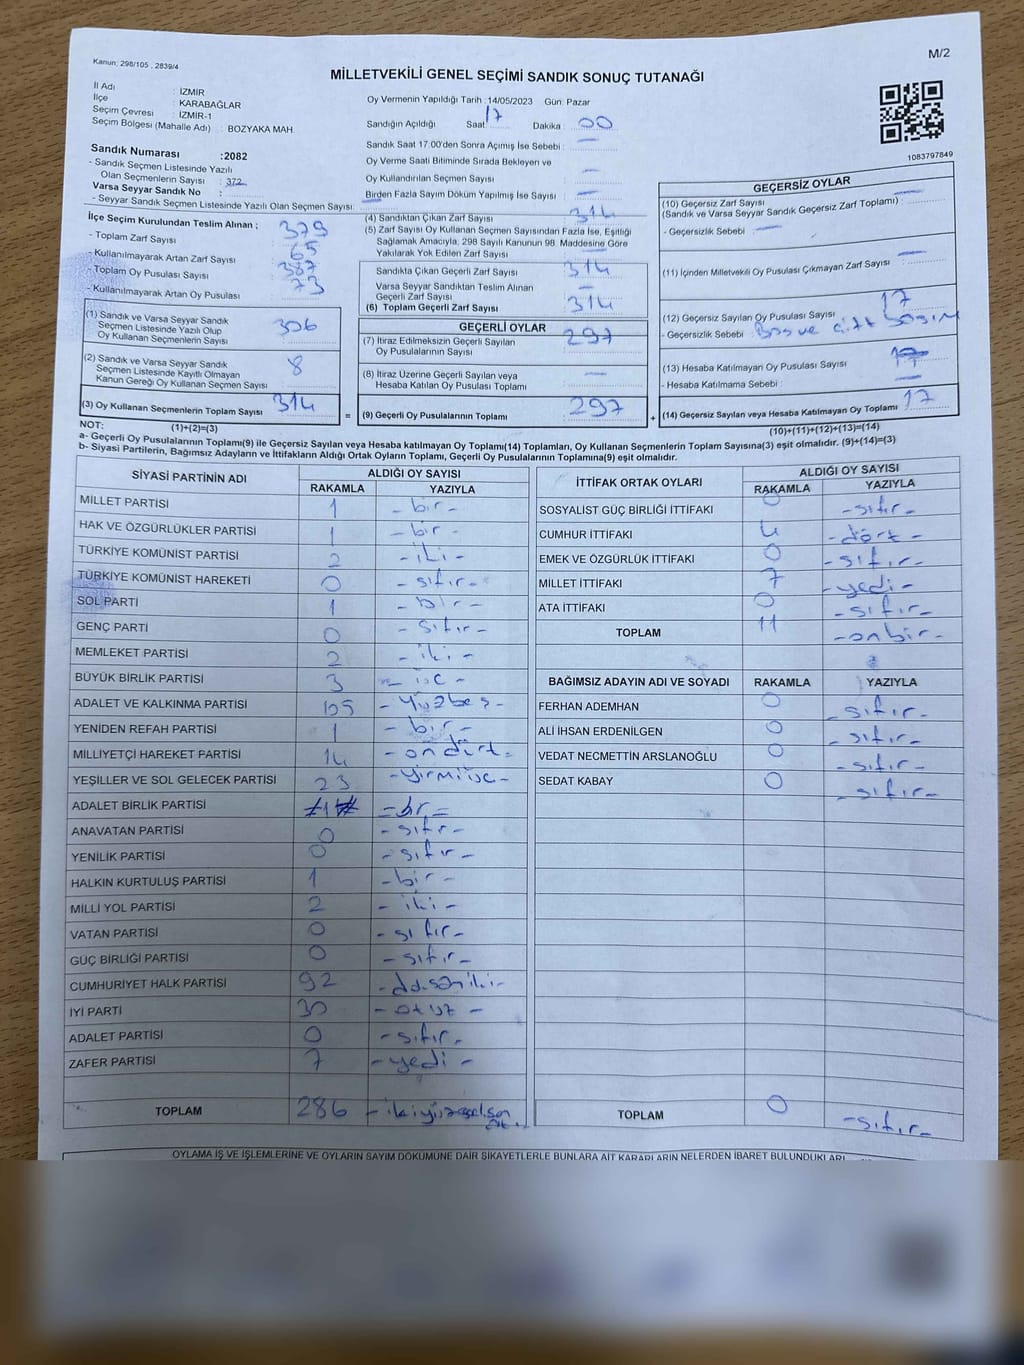 M/2
Kanun; 298/105 , 2839/4
MİLLETVEKİLİ GENEL SEÇİMİ SANDIK SONUÇ TUTANAĞI
İl Adı : İZMİR
İlçe : KARABAĞLAR
Seçim Çevresi : İZMİR-1
Seçim Bölgesi (Mahalle Adı) : BOZYAKA MAH.
Sandık Numarası :2082
- Sandık Seçmen Listesinde Yazılı
Olan Seçmenlerin Sayısı : 372
Varsa Seyyar Sandık No :
- Seyyar Sandık Seçmen Listesinde Yazılı Olan Seçmen Sayısı:
Oy Vermenin Yapıldığı Tarih :14/05/2023 Gün: Pazar
Sandığın Açıldığı Saat 17 Dakika : 00
Sandık Saat 17.00'den Sonra Açımış İse Sebebi : —
Oy Verme Saati Bitiminde Sırada Bekleyen ve
Oy Kullandırılan Seçmen Sayısı : —
Birden Fazla Sayım Döküm Yapılmış İse Sayısı : —
1083797849
İlçe Seçim Kurulundan Teslim Alınan ;
- Toplam Zarf Sayısı : 379
- Kullanılmayarak Artan Zarf Sayısı : 65
- Toplam Oy Pusulası Sayısı : 387
- Kullanılmayarak Artan Oy Pusulası : 73
(1) Sandık ve Varsa Seyyar Sandık
Seçmen Listesinde Yazılı Olup
Oy Kullanan Seçmenlerin Sayısı : 306
(2) Sandık ve Varsa Seyyar Sandık
Seçmen Listesinde Kayıtlı Olmayan
Kanun Gereği Oy Kullanan Seçmen Sayısı : 8
(3) Oy Kullanan Seçmenlerin Toplam Sayısı : 314 =
(4) Sandıktan Çıkan Zarf Sayısı : 314
(5) Zarf Sayısı Oy Kullanan Seçmen Sayısından Fazla İse, Eşitliği
Sağlamak Amacıyla; 298 Sayılı Kanunun 98. Maddesine Göre
Yakılarak Yok Edilen Zarf Sayısı : —
Sandıkta Çıkan Geçerli Zarf Sayısı : 314
Varsa Seyyar Sandıktan Teslim Alınan
Geçerli Zarf Sayısı : —
(6) Toplam Geçerli Zarf Sayısı : 314
GEÇERLİ OYLAR
(7) İtiraz Edilmeksizin Geçerli Sayılan
Oy Pusulalarının Sayısı : 297
(8) İtiraz Üzerine Geçerli Sayılan veya
Hesaba Katılan Oy Pusulası Toplamı : —
(9) Geçerli Oy Pusulalarının Toplamı : 297 +
GEÇERSİZ OYLAR
(10) Geçersiz Zarf Sayısı : —
(Sandık ve Varsa Seyyar Sandık Geçersiz Zarf Toplamı) :
- Geçersizlik Sebebi : —
(11) İçinden Milletvekili Oy Pusulası Çıkmayan Zarf Sayısı : —
(12) Geçersiz Sayılan Oy Pusulası Sayısı : 17
- Geçersizlik Sebebi : Boş ve çift
(13) Hesaba Katılmayan Oy Pusulası Sayısı :
- Hesaba Katılmama Sebebi : —
(14) Geçersiz Sayılan veya Hesaba Katılmayan Oy Toplamı : 17
NOT: (1)+(2)=(3)
(10)+(11)+(12)+(13)=(14)
a- Geçerli Oy Pusulalarının Toplamı(9) ile Geçersiz Sayılan veya Hesaba katılmayan Oy Toplamı(14) Toplamları, Oy Kullanan Seçmenlerin Toplam Sayısına(3) eşit olmalıdır. (9)+(14)=(3)
b- Siyasi Partilerin, Bağımsız Adayların ve İttifakların Aldığı Ortak Oyların Toplamı, Geçerli Oy Pusulalarının Toplamına(9) eşit olmalıdır.
SİYASİ PARTİNİN ADI ALDIĞI OY SAYISI
RAKAMLA YAZIYLA
MİLLET PARTİSİ 1 - bir -
HAK VE ÖZGÜRLÜKLER PARTİSİ 1 - bir -
TÜRKİYE KOMÜNİST PARTİSİ 2 - iki -
TÜRKİYE KOMÜNİST HAREKETİ 0 - sıfır -
SOL PARTİ 1 - bir -
GENÇ PARTİ 0 - sıfır -
MEMLEKET PARTİSİ 2 - iki -
BÜYÜK BİRLİK PARTİSİ 3 - üç -
ADALET VE KALKINMA PARTİSİ 105 - yüzbeş -
YENİDEN REFAH PARTİSİ 1 - bir -
MİLLİYETÇİ HAREKET PARTİSİ 14 - ondört -
YEŞİLLER VE SOL GELECEK PARTİSİ 23 - yirmiüç -
ADALET BİRLİK PARTİSİ #1# - bir -
ANAVATAN PARTİSİ 0 - sıfır -
YENİLİK PARTİSİ 0 - sıfır -
HALKIN KURTULUŞ PARTİSİ 1 - bir -
MİLLİ YOL PARTİSİ 2 - iki -
VATAN PARTİSİ 0 - sıfır -
GÜÇ BİRLİĞİ PARTİSİ 0 - sıfır -
CUMHURİYET HALK PARTİSİ 92 - doksaniki -
İYİ PARTİ 30 - otuz -
ADALET PARTİSİ 0 - sıfır -
ZAFER PARTİSİ 7 - yedi -
TOPLAM 286 - ikiyüzseksen
altı -
İTTİFAK ORTAK OYLARI ALDIĞI OY SAYISI
RAKAMLA YAZIYLA
SOSYALİST GÜÇ BİRLİĞİ İTTİFAKI 0 - sıfır -
CUMHUR İTTİFAKI 4 - dört -
EMEK VE ÖZGÜRLÜK İTTİFAKI 0 - sıfır -
MİLLET İTTİFAKI 7 - yedi -
ATA İTTİFAKI 0 - sıfır -
TOPLAM 11 - onbir -
BAĞIMSIZ ADAYIN ADI VE SOYADI RAKAMLA YAZIYLA
FERHAN ADEMHAN 0 - sıfır -
ALİ İHSAN ERDENİLGEN 0 - sıfır -
VEDAT NECMETTİN ARSLANOĞLU 0 - sıfır -
SEDAT KABAY 0 - sıfır -
TOPLAM 0 - sıfır -
OYLAMA İŞ VE İŞLEMLERİNE VE OYLARIN SAYIM DÖKÜMÜNE DAİR ŞİKAYETLERLE BUNLARA AİT KARARLARIN NELERDEN İBARET BULUNDUKLARI